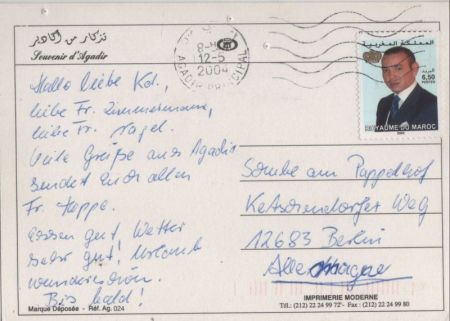 تذكار من أكادير
Souvenir d'Agadir
8-
12-5
2004
AGADIR PRINCIPAL
المملكة المغربية
البريد
6,50
POSTES
ROYAUME DU MAROC
Hallo liebe Kol.,
liebe Fr. Zimmermann,
liebe Fr. Nagel.
Viele Grüße aus Agadir
sendet Euch allen
Fr. Hoppe.
Essen gut, Wetter
sehr gut! Urlaub
wunderschön.
Bis bald!
Schule am Pappelhof
Ketschendorfer Weg
12683 Berlin
Allemagne
Marque Déposée - Réf. Ag. 024
IMPRIMERIE MODERNE
Tél.: (212) 22 24 99 72 - Fax: (212) 22 24 99 80